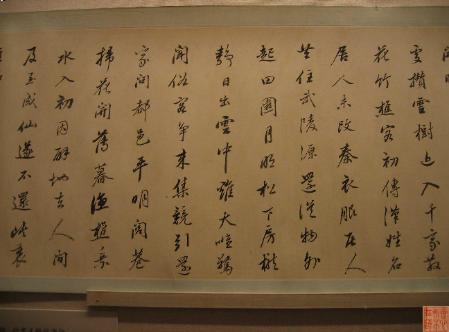 處攢雲樹近入千家散
花竹樵客初傳漢姓名
居人未改秦衣服居人
共住武陵源還從物外
起田園月明松下房櫳
靜日出雲中雞犬喧驚
聞俗客爭來集競引還
家問都邑平明閭巷
掃花開薄暮漁樵乘
水入初因避地去人間
及至成仙遂不還峽裏